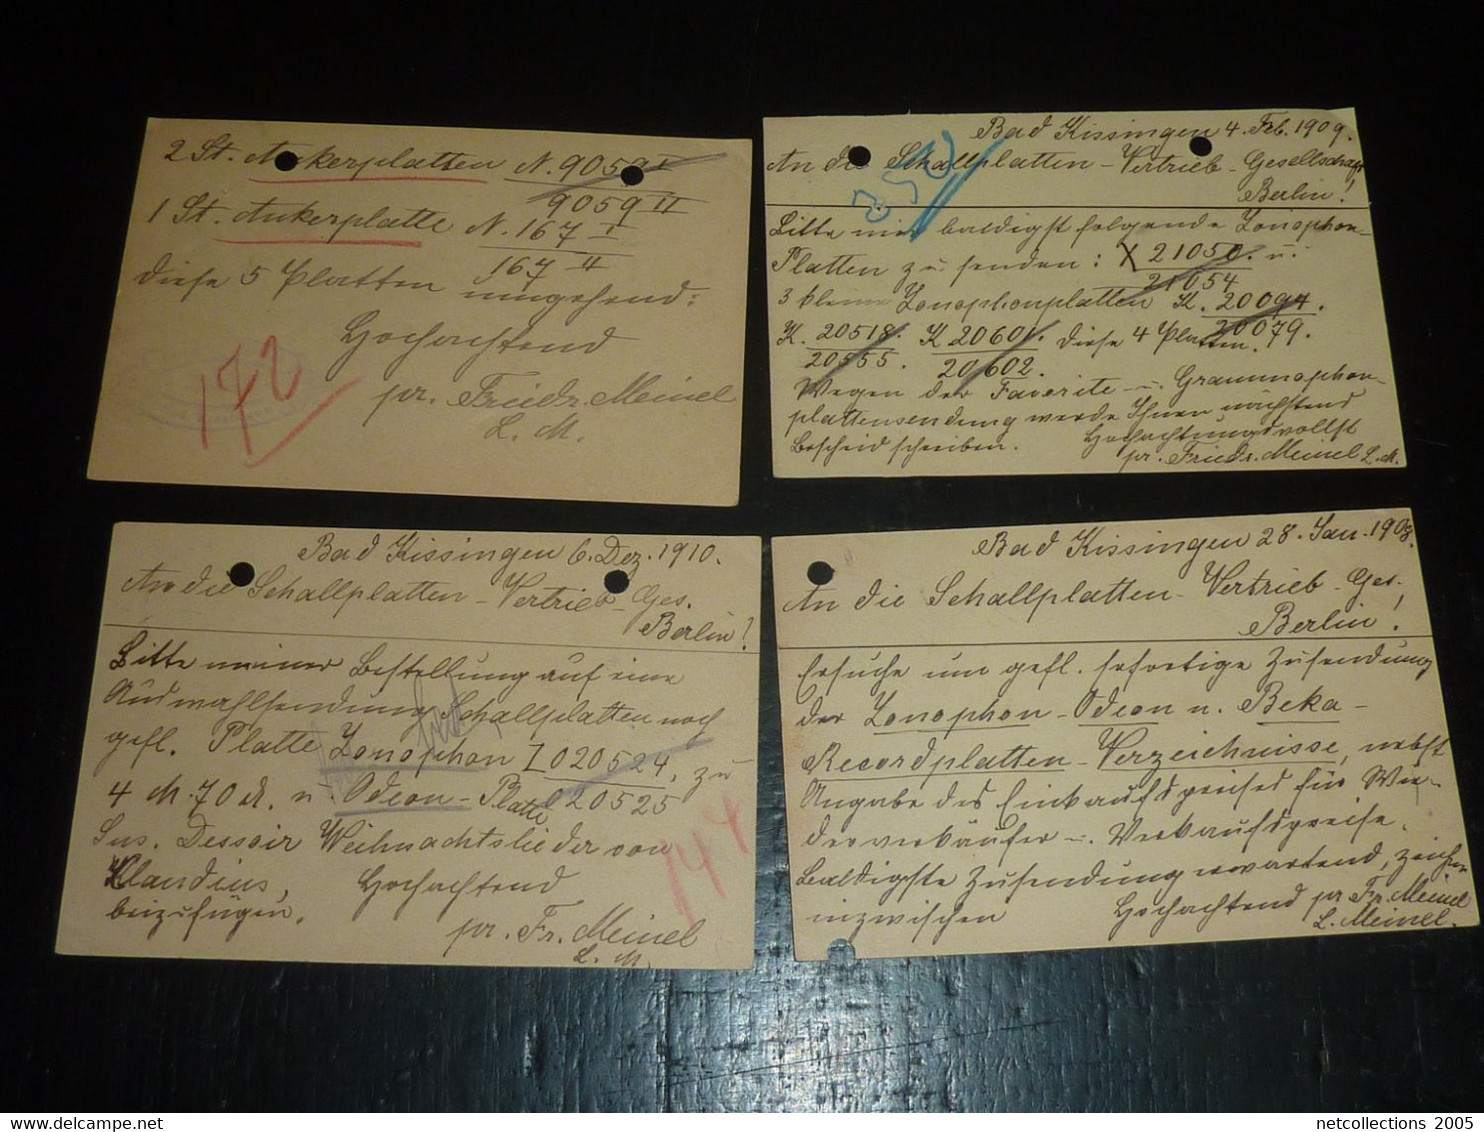 2 St. Ankerplatten N. 9059 I
9059 II
1 St. Ankerplatte N. 167 I
167 II
diese 5 Platten umgehend:
Hochachtend
pr. Friedr. Meinel
L. M.
172
Bad Kissingen 4. Feb. 1909.
An die Schallplatten-Vertrieb-Gesellschaft
Berlin!
Bitte mir baldigst folgende Zonophon-
Platten zu senden: X 21050. u.
21054
3 kleine Zonophonplatten K. 20094.
20079.
K. 20518. K 20601. diese 4 Platten.
20555. 20602.
Wegen der Favorite- u. Grammophon-
plattensendung werde Ihnen nächstens
Bescheid schreiben. Hochachtungsvollst
pr. Friedr. Meinel L. M.
Bad Kissingen 6. Dez. 1910.
An die Schallplatten-Vertrieb-Ges.
Berlin!
Bitte meiner Bestellung auf eine
Auswahlsendung Schallplatten noch
gefl. Platte Zonophon 020524, zu
4 M. 70 d. u. Odeon-Platte 020525
Sus. Dessoir Weihnachtslieder von
Klaudius,
beizufügen. Hochachtend
pr. Fr. Meinel
L. M.
Bad Kissingen 28. Jan. 1908.
An die Schallplatten-Vertrieb-Ges.,
Berlin!
Ersuche um gefl. sofortige Zusendung
der Zonophon-Odeon u. Beka-
Recordplatten-Verzeichnisse, nebst
Angabe des Einkaufspreises für Wie-
derverkäufer u. Verkaufspreise.
Baldigste Zusendung erwartend, zeichne
inzwischen Hochachtend pr Fr. Meinel
L. Meinel.
netcollections 2005